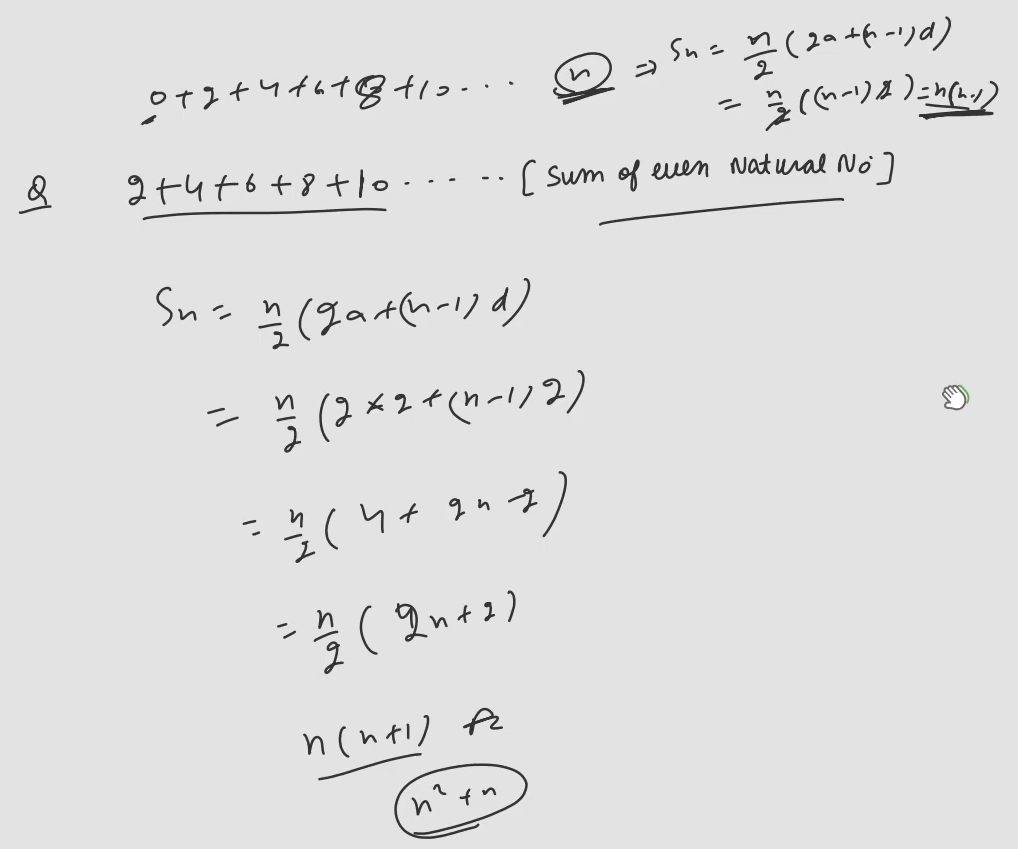 0+2+4+6+8+10.... n ⇒ Sn = n/2 (2a+(n-1)d)
= n/2 ((n-1)2) = n(n-1)
Q 2+4+6+8+10...... [Sum of even Natural No]
Sn = n/2 (2a+(n-1)d)
= n/2 (2×2+(n-1)2)
= n/2 (4+2n-2)
= n/2 (2n+2)
n(n+1)
n²+n